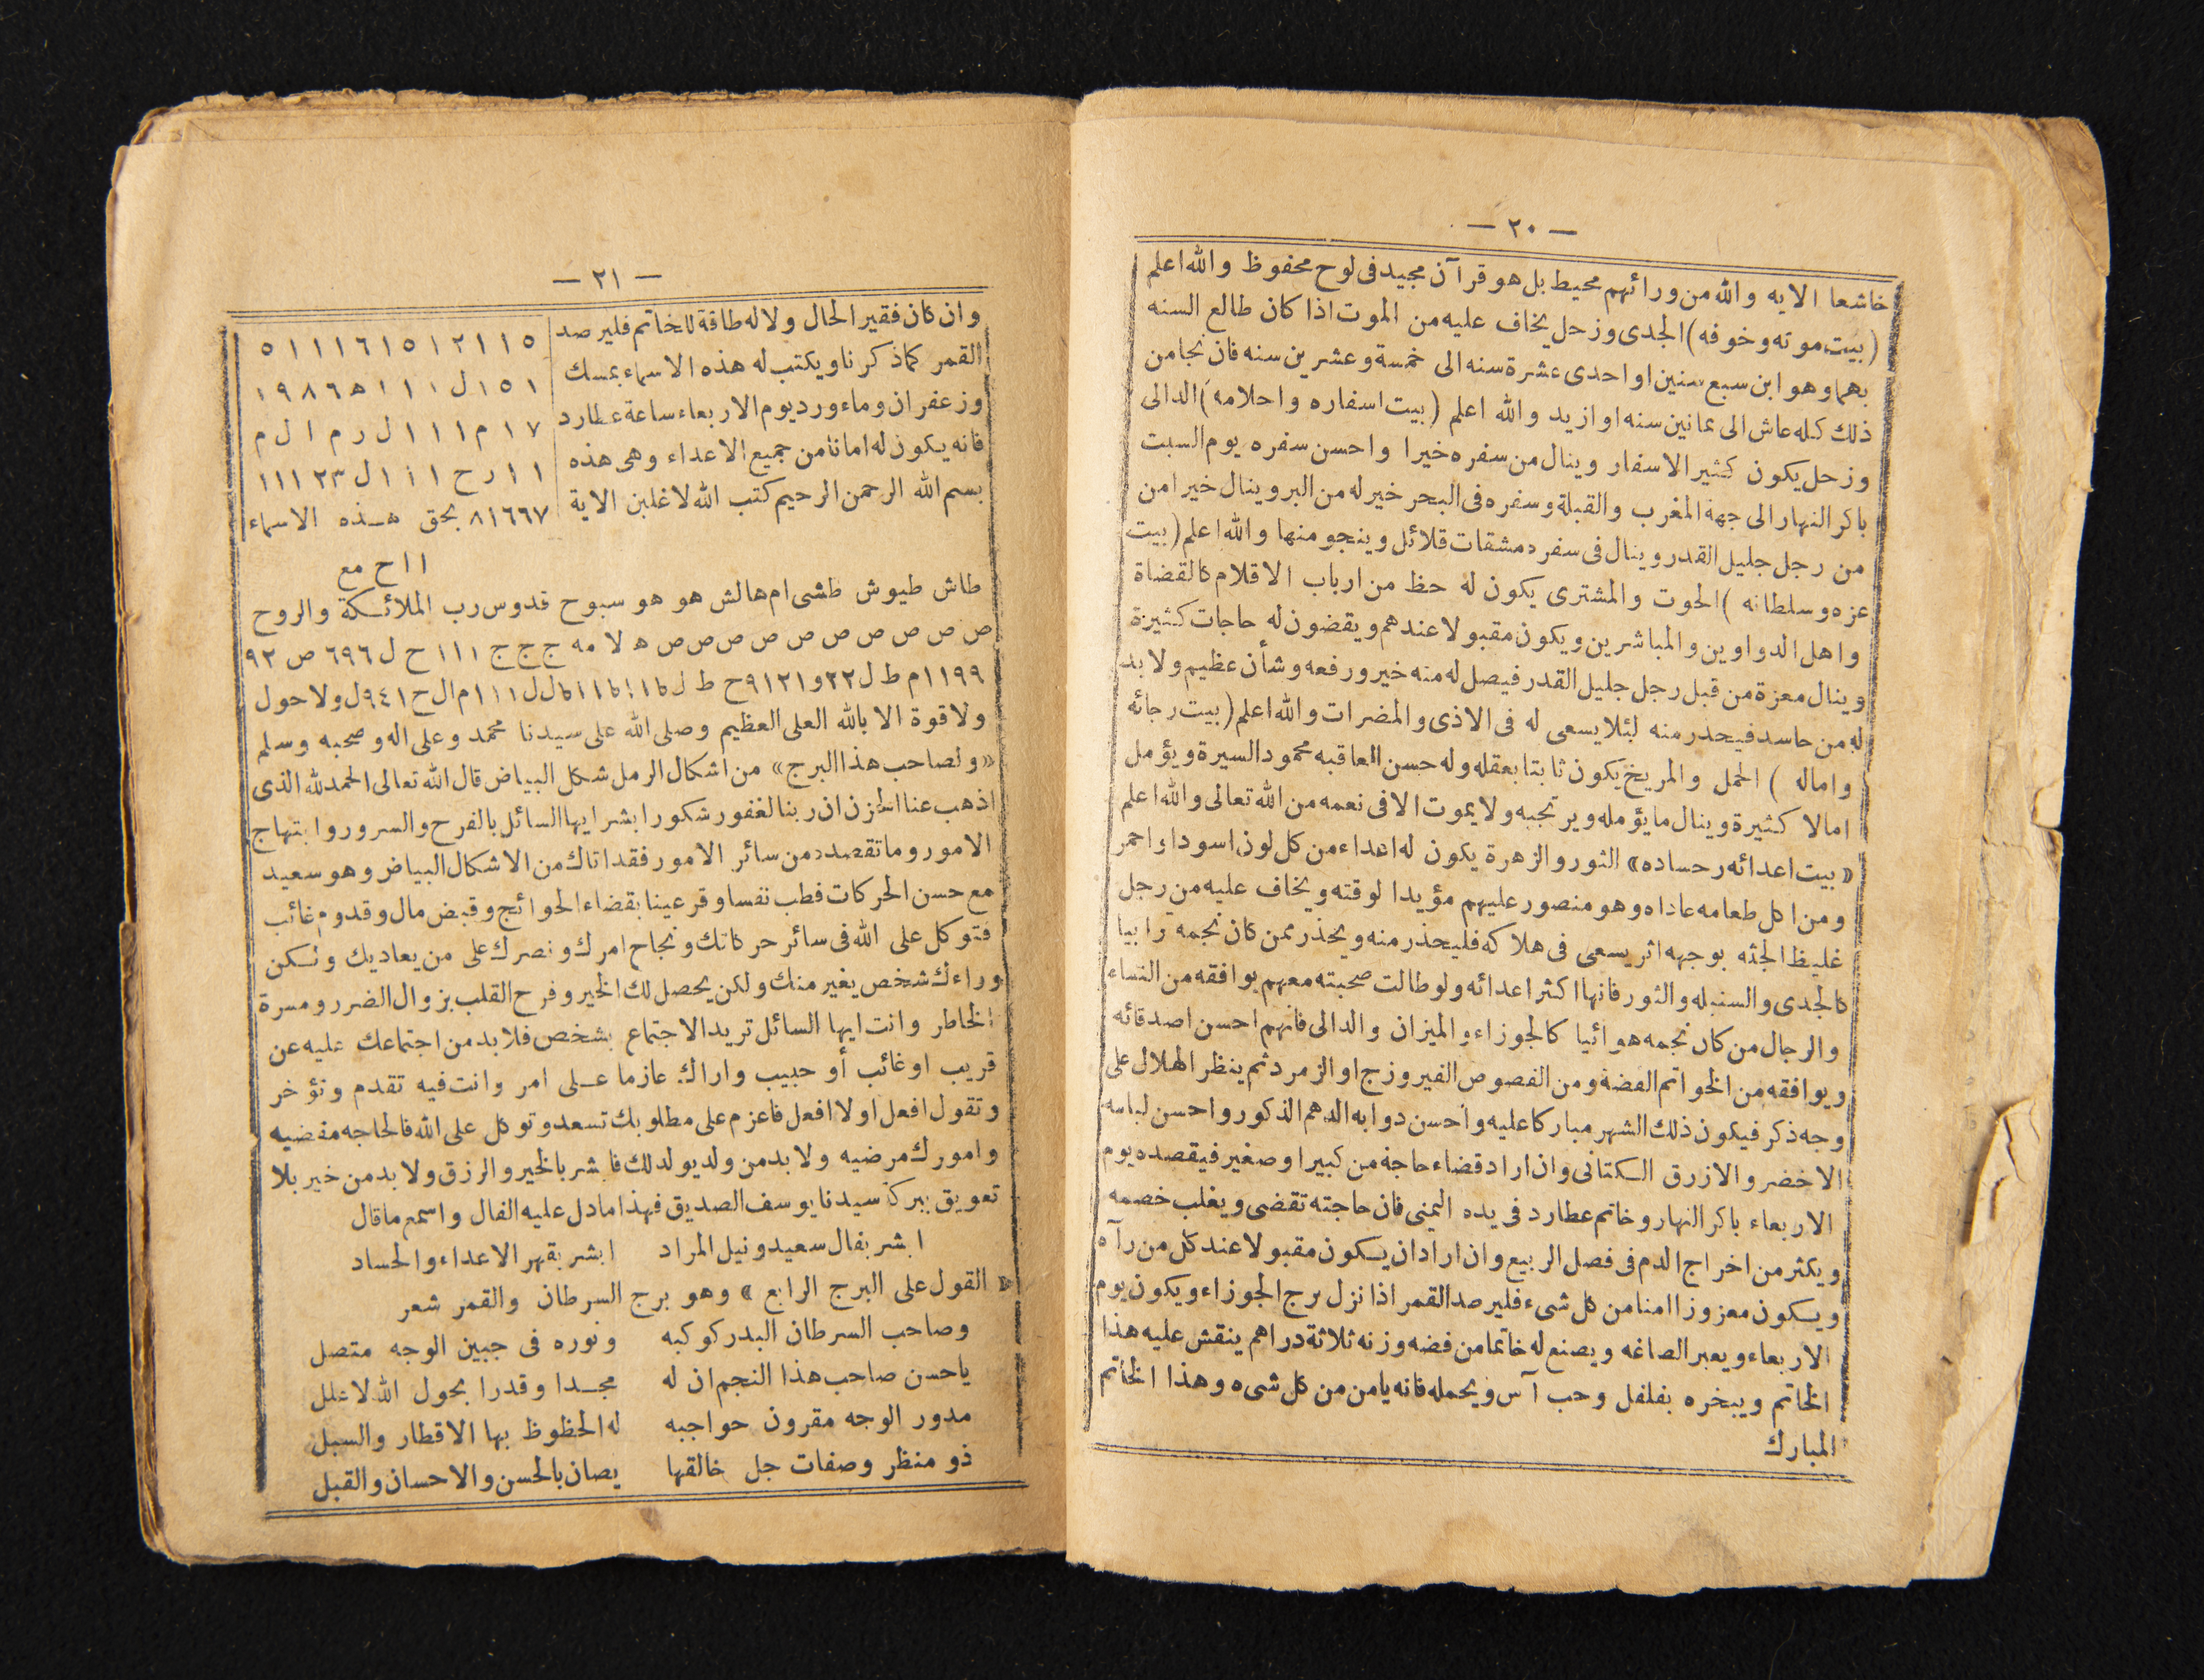 — ٢٠ —
خاشعا الايه والله من ورائهم محيط بل هو قرآن مجيد فى لوح محفوظ والله اعلم
(بيت موته وخوفه) الجدى وزحل يخاف عليه من الموت اذا كان طالع السنه
بهما وهو ابن سبع سنين او احدى عشرة سنه الى خمسة وعشرين سنه فان نجا من
ذلك كله عاش الى ثمانين سنه او ازيد والله اعلم (بيت اسفاره واحلامه) الدالى
وزحل يكون كثير الاسفار وينال من سفره خيرا واحسن سفره يوم السبت
باكر النهار الى جهة المغرب والقبلة وسفره فى البحر خير له من البر وينال خيرا من
من رجل جليل القدر وينال فى سفره مشقات قلائل وينجو منها والله اعلم (بيت
عزه وسلطانه) الحوت والمشترى يكون له حظ من ارباب الاقلام كالقضاة
واهل الدواوين والمباشرين ويكون مقبولا عندهم ويقضون له حاجات كثيرة
وينال معزة من قبل رجل جليل القدر فيصل له منه خير ورفعه وشأن عظيم ولا بد
له من حاسد فيحذر منه لئلا يسعى له فى الاذى والمضرات والله اعلم (بيت رجائه
واماله) الحمل والمريخ يكون ثابتا بعقله وله حسن العاقبه محمود السيرة ويؤمل
امالا كثيرة وينال ما يؤمله ويرتجيه ولا يموت الا فى نعمه من الله تعالى والله اعلم
«بيت اعدائه وحساده» الثور والزهرة يكون له اعداء من كل لون اسود او احمر
ومن اكل طعامه عاداه وهو منصور عليهم مؤيدا لوقته ويخاف عليه من رجل
غليظ الجثه بوجهه اثر يسعى فى هلاكه فليحذر منه ويحذر ممن كان نجمه ترابيا
كالجدى والسنبله والثور فانها اكثر اعدائه ولو طالت صحبته معهم يوافقه من النساء
والرجال من كان نجمه هوائيا كالجوزاء والميزان والدالى فانهم احسن اصدقائه
ويوافقه من الخواتم الفضة ومن الفصوص الفيروزج او الزمرد ثم ينظر الهلال على
وجه ذكر فيكون ذلك الشهر مباركا عليه واحسن دوابه الدهم الذكور واحسن لباسه
الاخضر والازرق الكتانى وان اراد قضاء حاجة من كبير او صغير فيقصده يوم
الاربعاء باكر النهار وخاتم عطارد فى يده اليمنى فان حاجته تقضى ويغلب خصمه
ويكثر من اخراج الدم فى فصل الربيع وان اراد ان يكون مقبولا عند كل من رآه
ويكون معزوزا امنا من كل شىء فليرصد القمر اذا نزل برج الجوزاء ويكون يوم
الاربعاء ويعبر الصاغه ويصنع له خاتما من فضه وزنه ثلاثة دراهم ينقش عليه هذا
الخاتم ويبخره بفلفل وحب آس ويحمله فانه يامن من كل شىء وهذا الخاتم
المبارك
— ٢١ —
وان كان فقير الحال ولا له طاقة للخاتم فليرصد
القمر كما ذكرنا ويكتب له هذه الاسماء بمسك
وزعفران وماء ورد يوم الاربعاء ساعة عطارد
فانه يكون له امانا من جميع الاعداء وهى هذه
بسم الله الرحمن الرحيم كتب الله لاغلبن الاية
٥ ١ ١ ٢ ١ ٥ ١ ٦ ١ ١ ١ ٥
١ ٥ ١ ل ١ ١ ١ ه ٦ ٨ ٩ ١
٧ ١ م ا ا ا ل ر م ا ل م
ا ا ر ح ا ا ا ل ٢٣ ١ ١ ١
٨١٦٦٧ بحق هذه الاسماء
ا ا ح مع
طاش طيوش طشى ام هالش هو هو سبوح قدوس رب الملائكة والروح
ص ص ص ص ص ص ص ص ص ص ه لا مه ج ج ج ١ ١ ١ ح ل ٦٩٦ ص ٩٢
ولا حول
ولا قوة الا بالله العلى العظيم وصلى الله على سيدنا محمد وعلى اله وصحبه وسلم
«ولصاحب هذا البرج» من اشكال الرمل شكل البياض قال الله تعالى الحمد لله الذى
اذهب عنا الحزن ان ربنا لغفور شكور ابشر ايها السائل بالفرح والسرور وابتهاج
الامور وما تقصده من سائر الامور فقد اتاك من الاشكال البياض وهو سعيد
مع حسن الحركات فطب نفسا وقر عينا بقضاء الحوائج وقبض مال وقدوم غائب
فتوكل على الله فى سائر حركاتك ونجاح امرك ونصرك على من يعاديك ولكن
وراءك شخص يغير منك ولكن يحصل لك الخير وفرح القلب بزوال الضرر ومسرة
الخاطر وانت ايها السائل تريد الاجتماع بشخص فلا بد من اجتماعك عليه عن
قريب او غائب أو حبيب واراك عازما على امر وانت فيه تقدم وتؤخر
وتقول افعل او لا افعل فاعزم على مطلوبك تسعد وتوكل على الله فالحاجه مقضيه
وامورك مرضيه ولا بد من ولد يولد لك فابشر بالخير والرزق ولا بد من خير بلا
تعويق ببركة سيدنا يوسف الصديق فهذا ما دل عليه الفال واسمع ما قال
ابشر بفال سعيد ونيل المراد ابشر بقهر الاعداء والحساد
«القول على البرج الرابع» وهو برج السرطان والقمر شعر
وصاحب السرطان البدر كوكبه ونوره فى جبين الوجه متصل
ياحسن صاحب هذا النجم ان له مجدا وقدرا بحول الله لا علل
مدور الوجه مقرون حواجبه له الحظوظ بها الاقطار والسبل
ذو منظر وصفات جل خالقها يصان بالحسن والاحسان والقبل